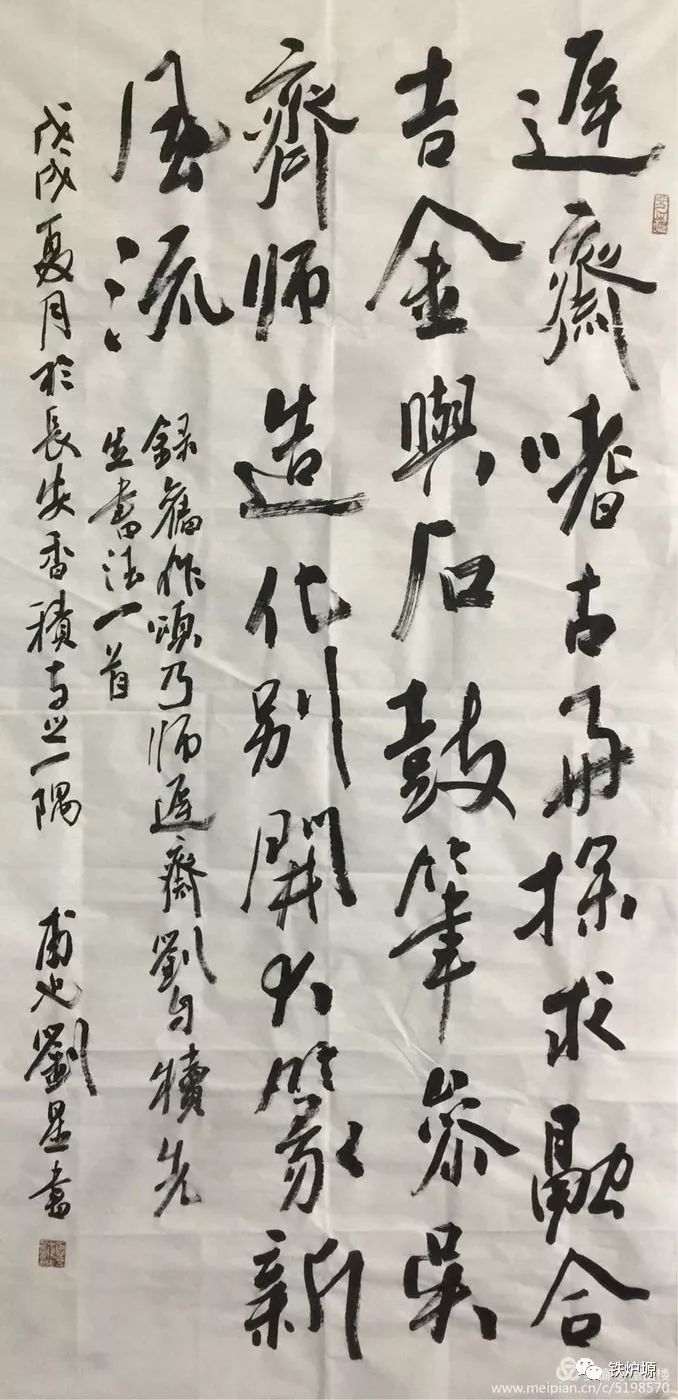 遲齋嗜古再探求融合
吉金與石鼓筆參吳
齊師造化別開大篆新
風流
錄舊作頌乃師遲齋劉自犢先
生書法一首
戊戌夏月於長安香積寺之一隅 甫也劉星書
铁炉塬
www.meipian.cn/c/5198570